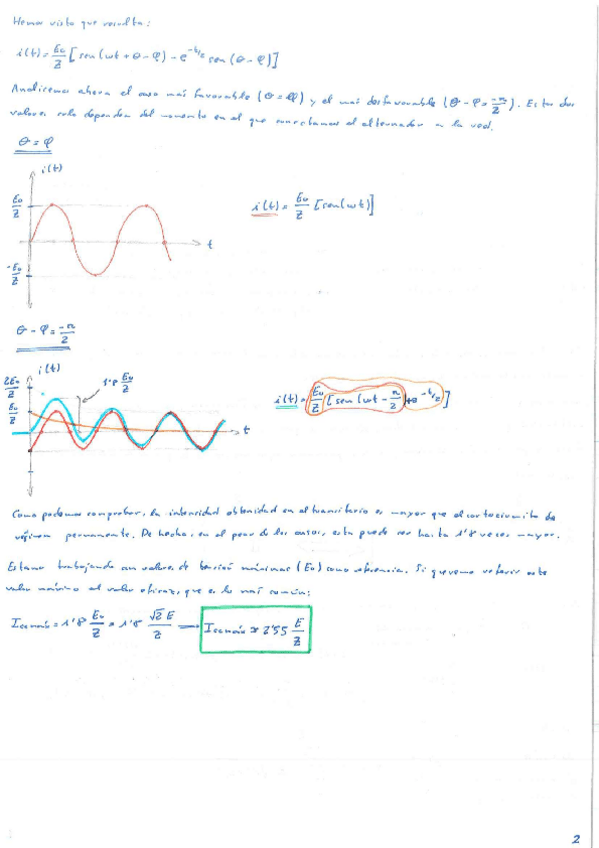 Hemos visto que resulta:
i(t) = E₀/Z [sen(ωt + θ - φ) - e^(-t/τ) sen(θ - φ)]
Analicemos ahora el caso más favorable (θ = φ) y el más desfavorable (θ - φ = -π/2). Estos dos
valores solo dependen del momento en el que conectamos el alternador a la red.
θ = φ
i(t)
E₀/Z
-E₀/Z
t
i(t) = E₀/Z [sen(ωt)]
θ - φ = -π/2
i(t)
2E₀/Z
E₀/Z
1'8 E₀/Z
t
i(t) = E₀/Z [sen(ωt - π/2) + e^(-t/τ)]
Como podemos comprobar, la intensidad obtenida en el transitorio es mayor que el cortocircuito de
régimen permanente. De hecho, en el peor de los casos, esta puede ser hasta 1'8 veces mayor.
Estamos trabajando con valores de tensión máximas (E₀) como referencia. Si queremos referir este
valor máximo al valor eficaz, que es lo más común:
= 1'8 E₀/Z = 1'8 √2 E/Z → ≈ 2'55 E/Z
2